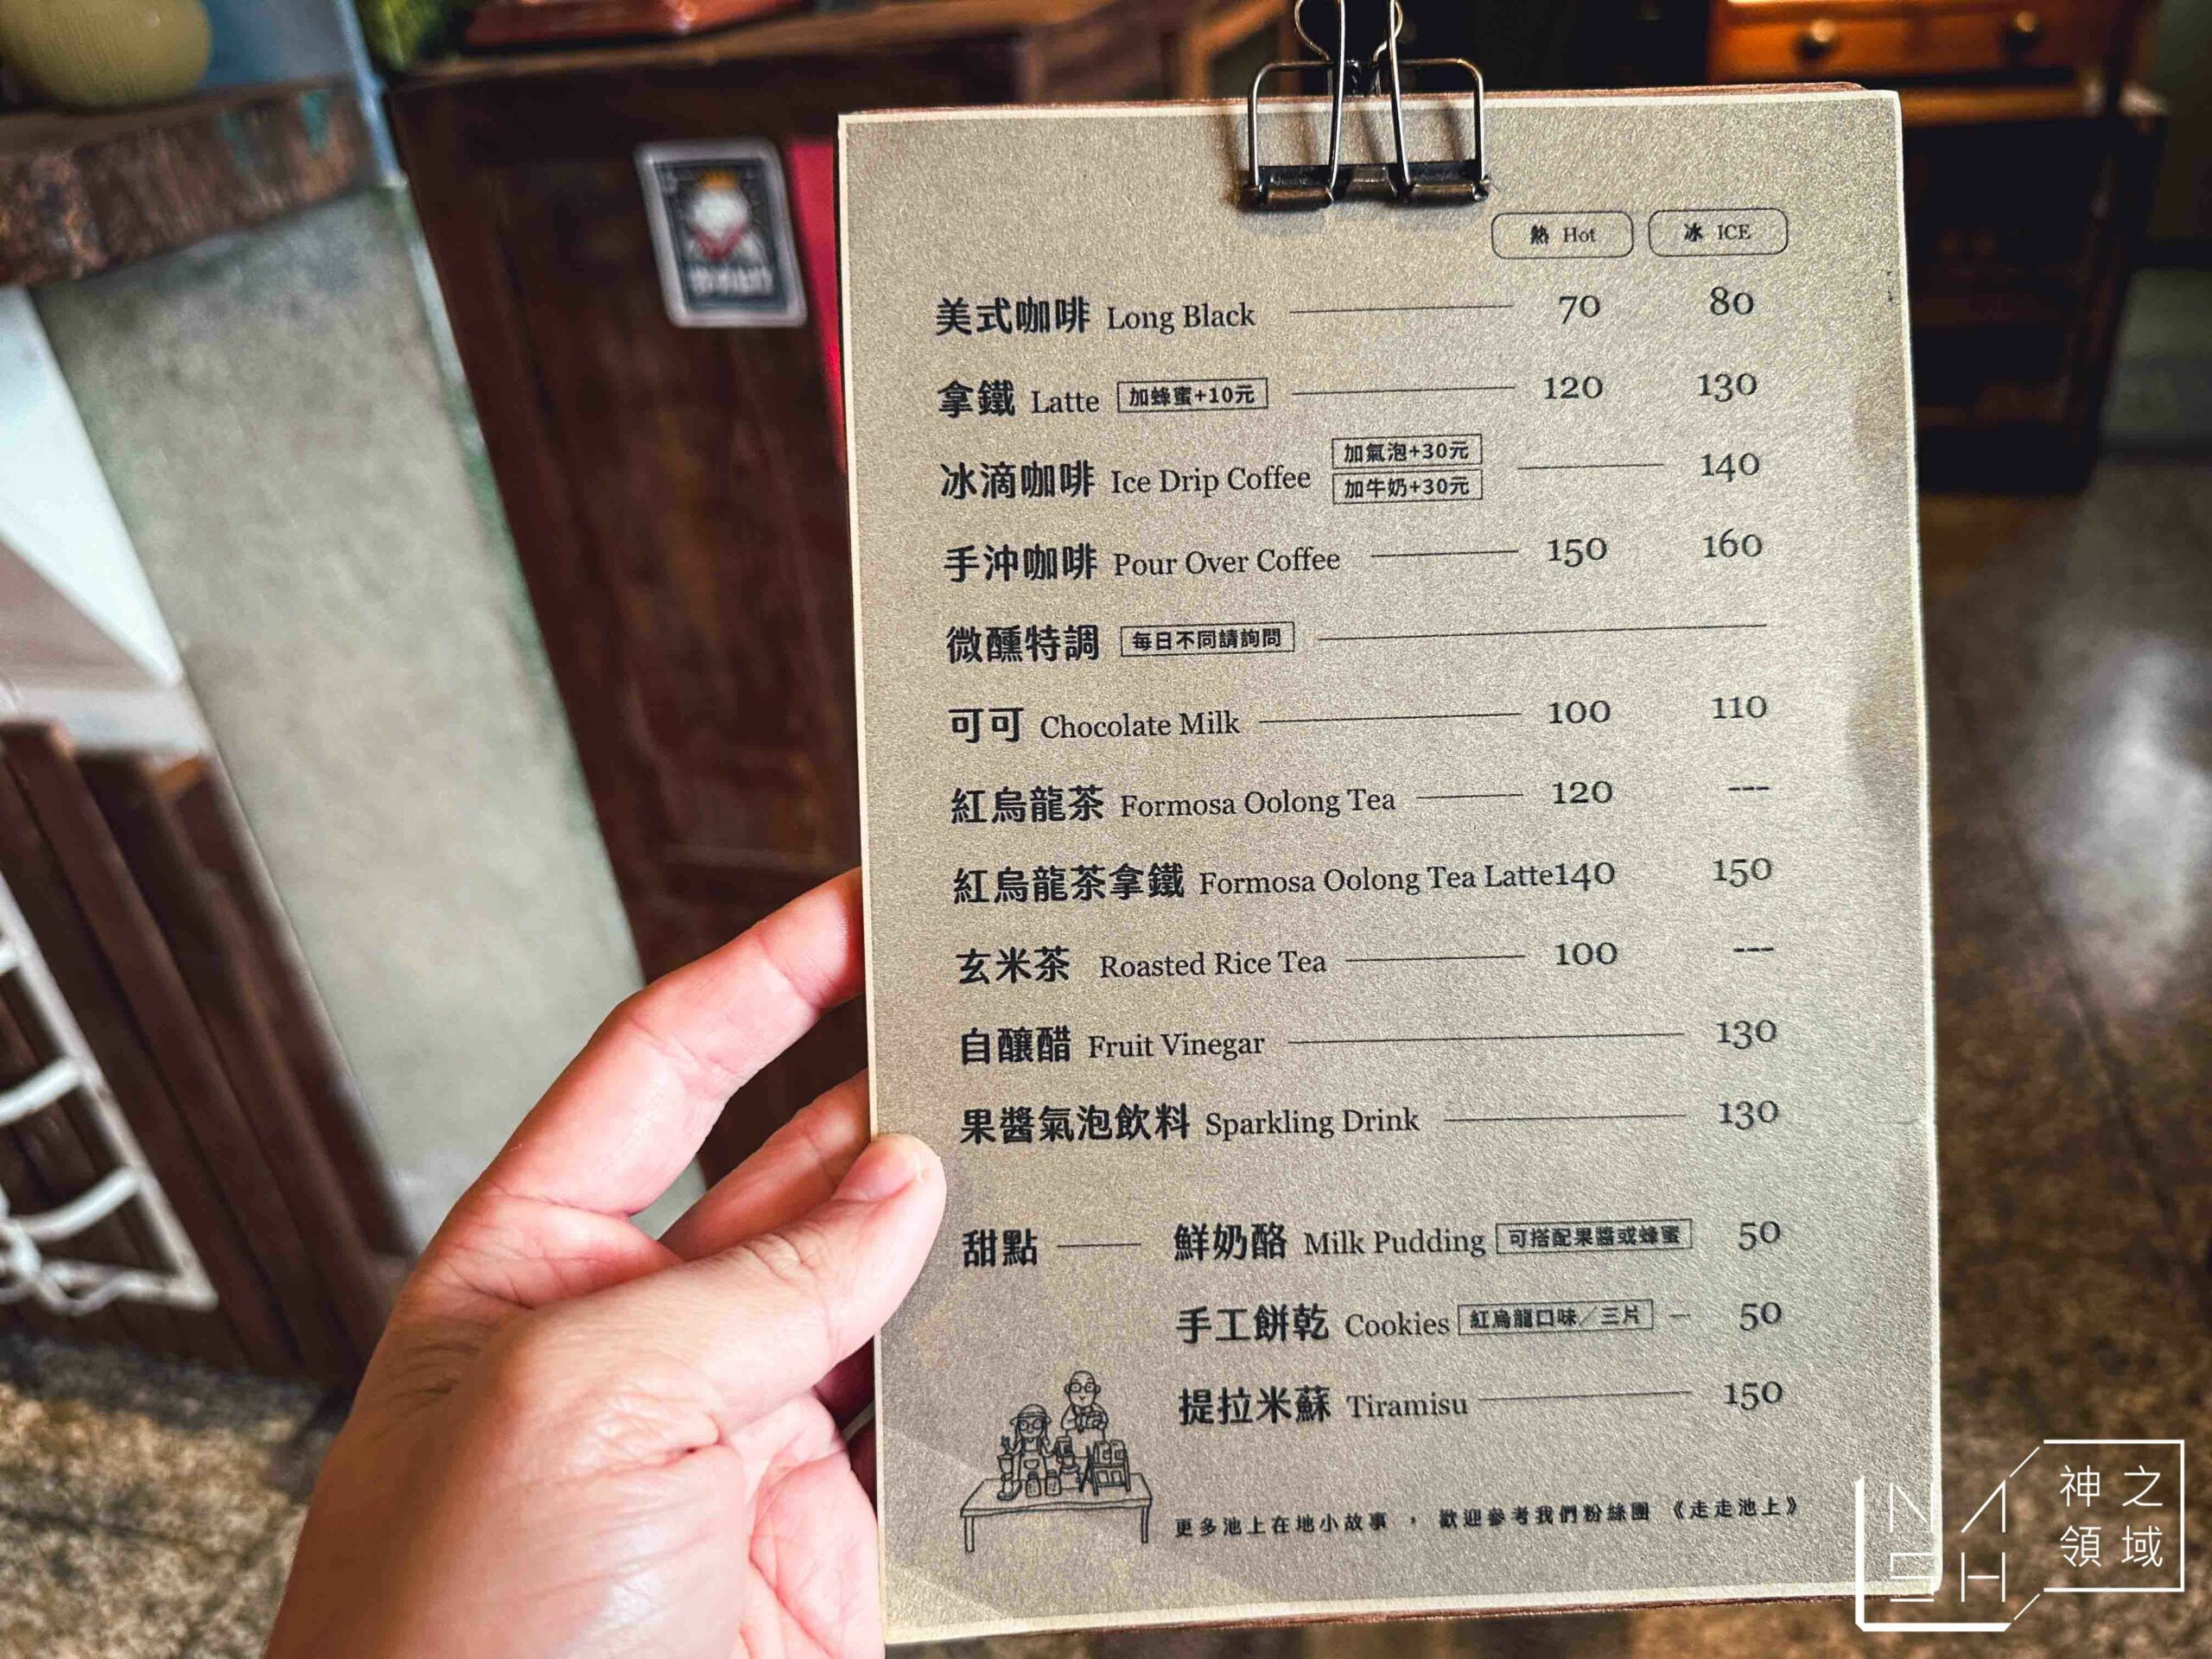 熱 Hot 冰 ICE
美式咖啡 Long Black 70 80
拿鐵 Latte 加蜂蜜+10元 120 130
冰滴咖啡 Ice Drip Coffee 加氣泡+30元 加牛奶+30元 140
手沖咖啡 Pour Over Coffee 150 160
微醺特調 每日不同請詢問
可可 Chocolate Milk 100 110
紅烏龍茶 Formosa Oolong Tea 120 ---
紅烏龍茶拿鐵 Formosa Oolong Tea Latte 140 150
玄米茶 Roasted Rice Tea 100 ---
自釀醋 Fruit Vinegar 130
果醬氣泡飲料 Sparkling Drink 130
甜點 鮮奶酪 Milk Pudding 可搭配果醬或蜂蜜 50
手工餅乾 Cookies 紅烏龍口味／三片 50
提拉米蘇 Tiramisu 150
更多池上在地小故事，歡迎參考我們粉絲團《走走池上》
NASH
神之
領域